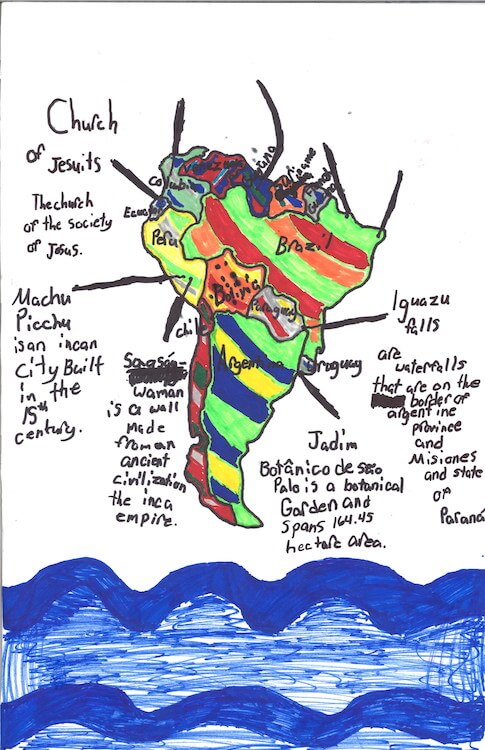 Church
of Jesuits
The church
of the society
of Jesus.
Machu
Picchu
is an incan
City Built
in the
15th
century.
Waman
is a wall
made
from an
ancient
civilization
the inca
empire.
Peru
Brazil
Bolivia
Paraguay
Chile
Argentina
Uruguay
Iguazu
falls
are
waterfalls
that are on the
border of
argentine
province
and
Misiones
and state
of
Paraná
Jadim
Botânico de são
Palo is a botanical
Garden and
spans 164.45
hectare area.